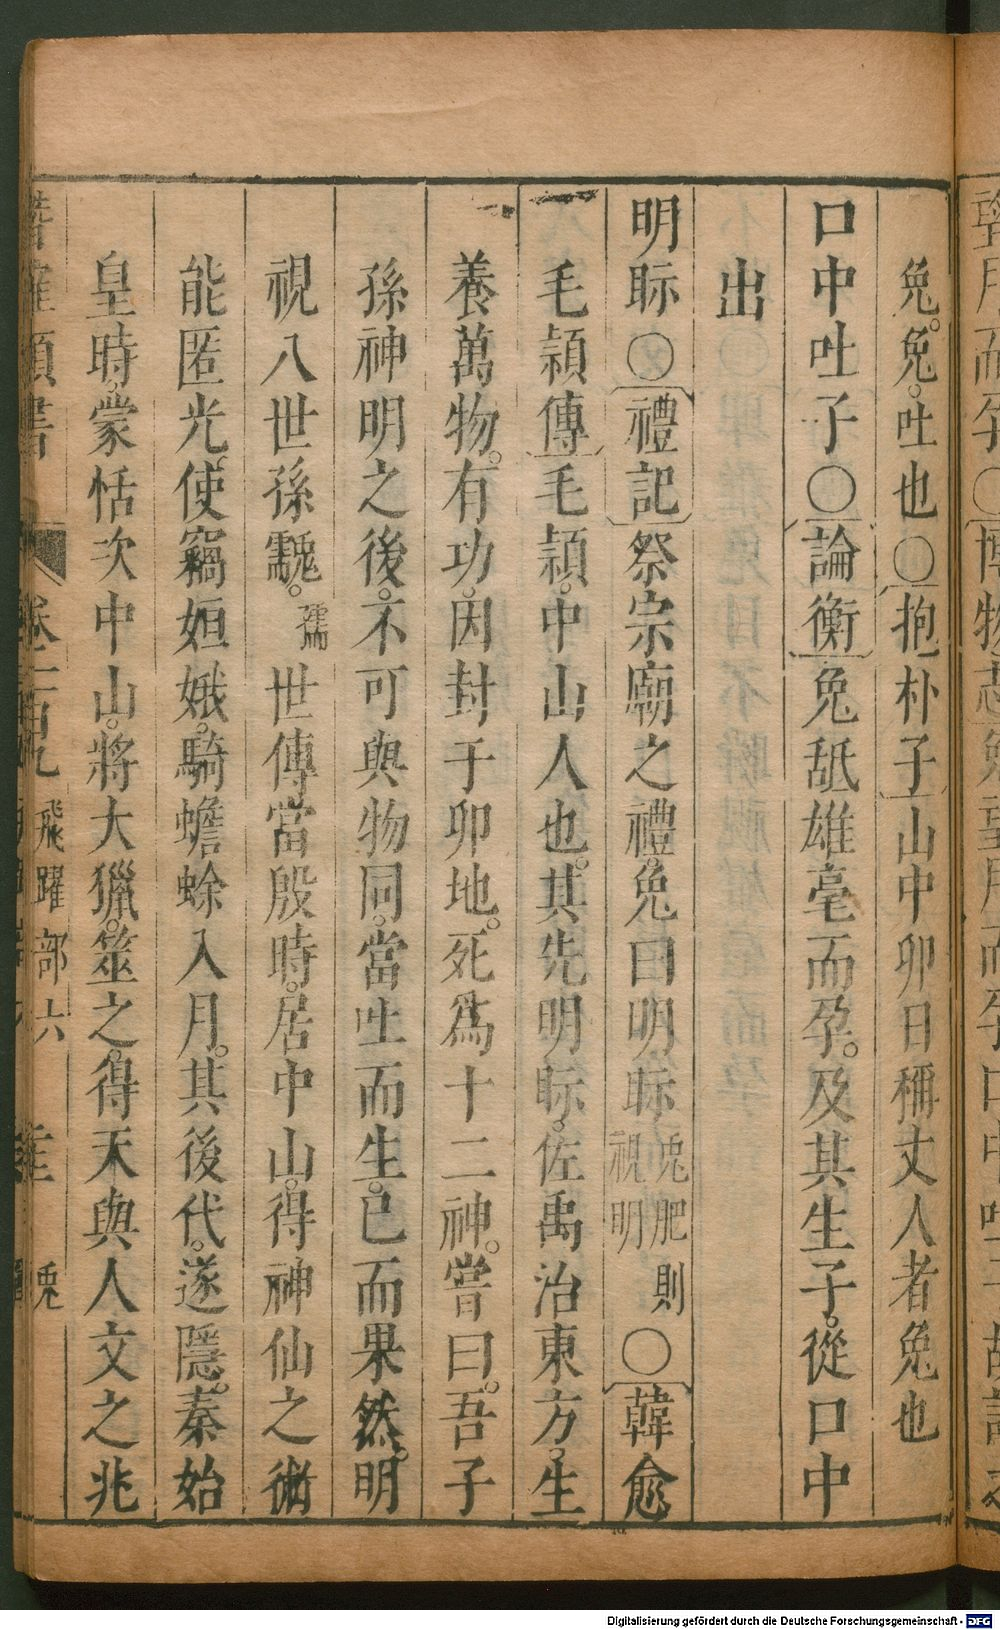 兔。兔。吐也○抱朴子山中卯日稱丈人者兔也
口中吐子○論衡兔舐雄毫而孕。及其生子。從口中
出
明眎○禮記祭宗廟之禮。兔曰明眎兔肥則視明○韓愈
毛穎傳毛穎。中山人也。其先明眎。佐禹治東方。生
養萬物。有功。因封于卯地。死爲十二神。嘗曰。吾子
孫神明之後。不可與物同。當吐而生。已而果然。明
視八世孫䨲。世傳當殷時。居中山。得神仙之術
能匿光使竊姮娥。騎蟾蜍入月。其後代。遂隱。秦始
皇時。蒙恬次中山。將大獵。筮之。得天與人文之兆
卷一百九 飛躍部六 兔
Digitalisierung gefördert durch die Deutsche Forschungsgemeinschaft - DFG